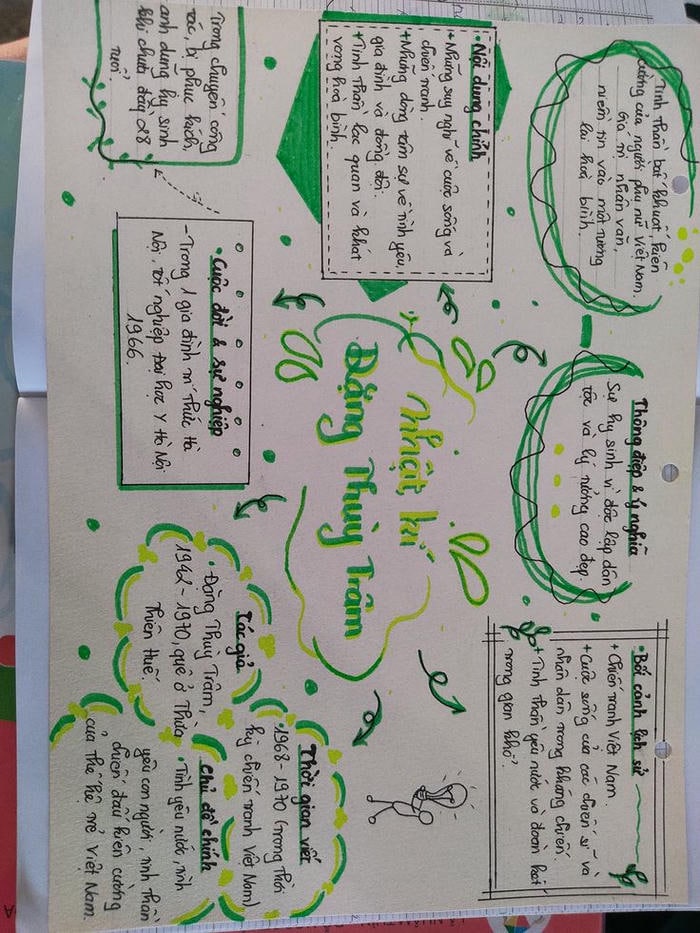 Tinh thần bất khuất, kiên
cường của người phụ nữ Việt Nam.
Giá trị nhân văn,
niềm tin vào một tương
lai hoà bình.
Thông điệp & ý nghĩa
Sự hy sinh vì độc lập dân
tộc và lý tưởng cao đẹp.
• Bối cảnh lịch sử
+ Chiến tranh Việt Nam.
+ Cuộc sống của các chiến sĩ và
nhân dân trong kháng chiến.
+ Tinh thần yêu nước và đoàn kết
trong gian khổ.
• Nội dung chính
+ Những suy nghĩ về cuộc sống và
chiến tranh.
+ Những dòng tâm sự về tình yêu,
gia đình và đồng đội.
+ Tinh thần lạc quan và khát
vọng hoà bình.
Nhật kí
Đặng Thuỳ Trâm
Trong chuyến công
tác, bị phục kích,
anh dũng hy sinh
khi chưa đầy 28
tuổi.
• Cuộc đời & sự nghiệp
- Trong 1 gia đình trí thức Hà
Nội, tốt nghiệp Đại học Y Hà Nội
1966.
Tác giả
• Đặng Thuỳ Trâm,
1942 - 1970, quê ở Thừa
Thiên Huế.
Thời gian viết
• 1968 - 1970 (trong thời
kỳ chiến tranh Việt Nam)
Chủ đề chính
• Tình yêu nước, tình
yêu con người, tinh thần
chiến đấu kiên cường
của thế hệ trẻ Việt Nam.